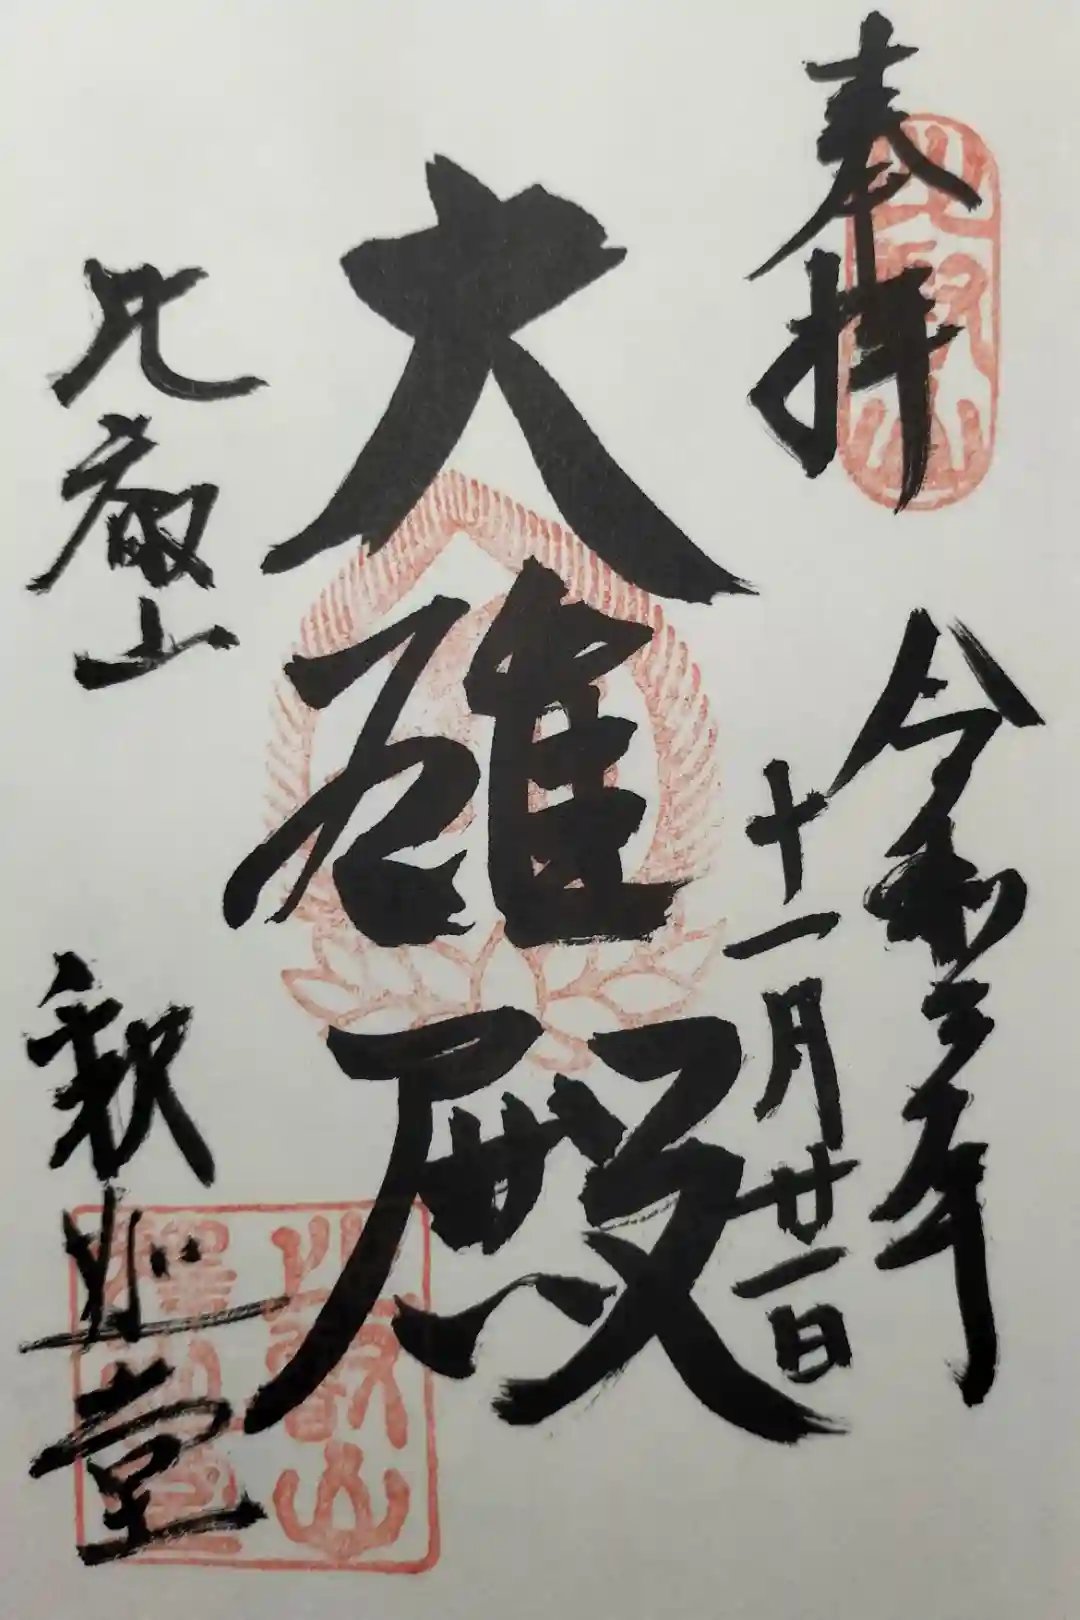 奉拝
令和三年
十一月廿一日
大雄殿
比叡山
釈迦堂
比叡山
比叡山
釋迦堂